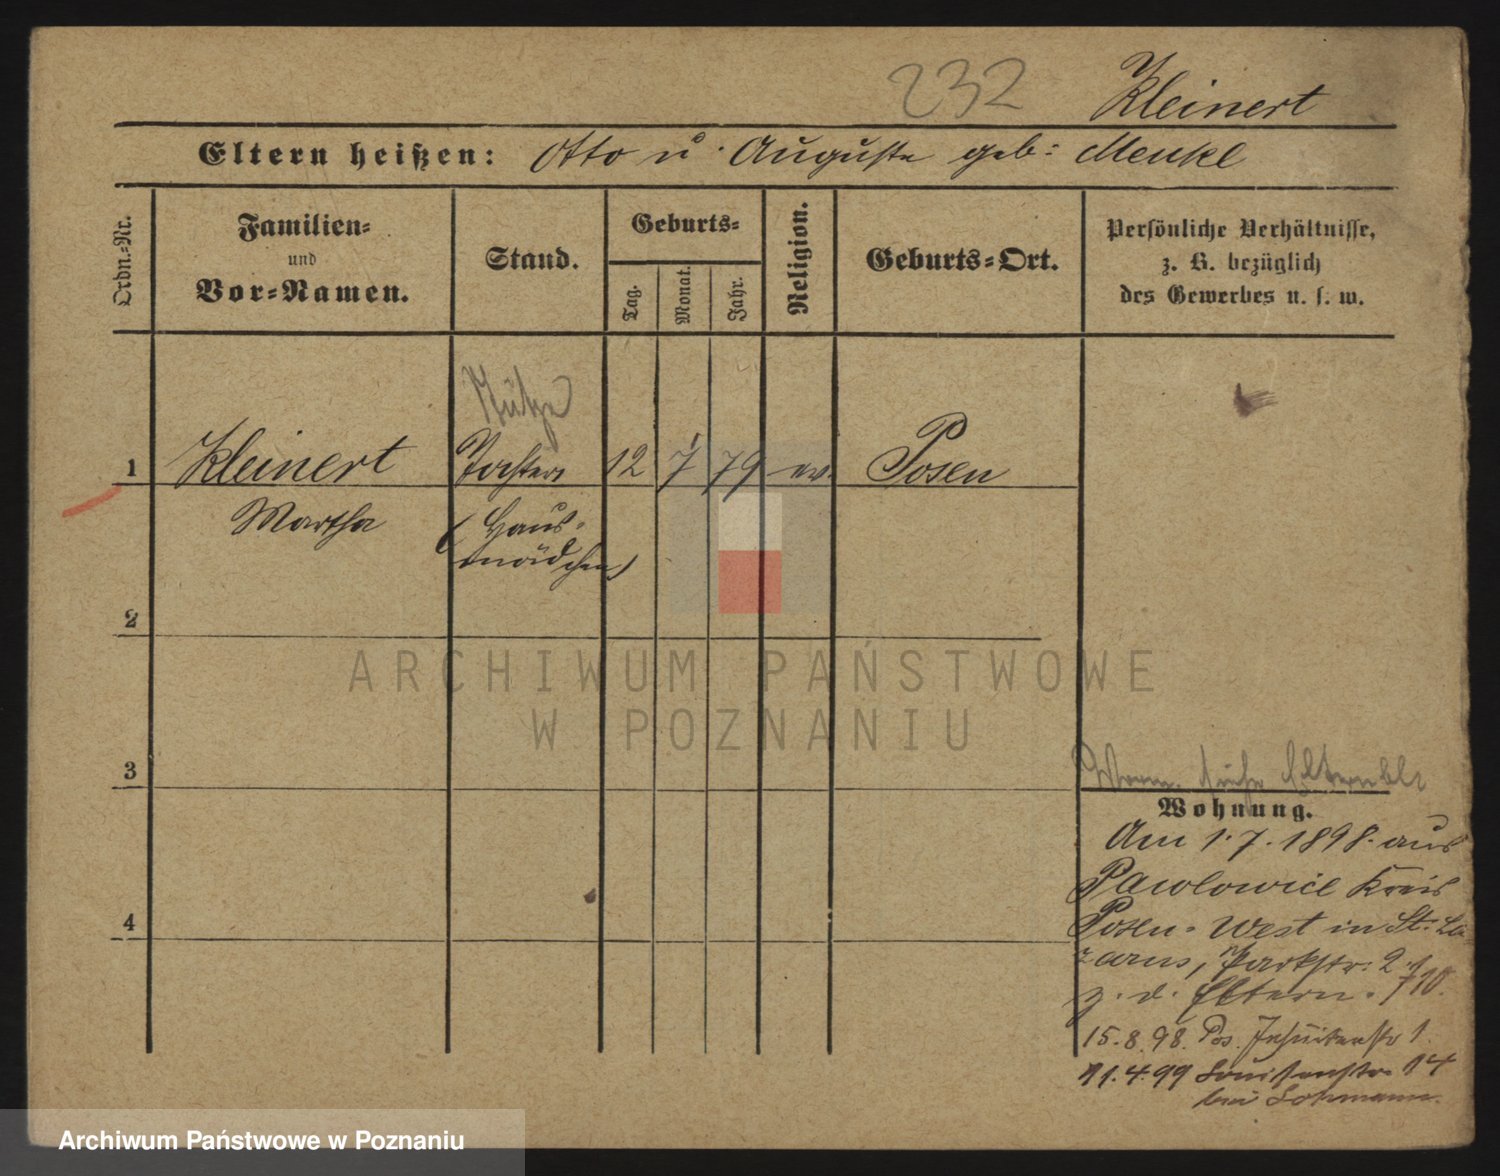 232 Kleinert
Eltern heißen: Otto u. Auguste geb: Menkl
Ordn.-Nr.
Familien-
und
Vor-Namen.
Stand.
Geburts-
Tag.
Monat.
Jahr.
Religion.
Geburts-Ort.
Persönliche Verhältnisse,
z. B. bezüglich
des Gewerbes u. s. w.
Stütze
1 Kleinert Tochter 12 7 79 ev. Posen
Martha (Haus-
mädchen)
2
ARCHIWUM PAŃSTWOWE
W POZNANIU
3
siehe Elternbl.
Wohnung.
Am 1.7.1898. aus
Pawlowice Kreis
4
Posen-West in St: La
zarus, Parkstr: 2.
z. d. Eltern.
15.8.98. Pos. Jesuitenstr 1.
11.4.99 Louisenstr. 14
bei Lohmann.
Archiwum Państwowe w Poznaniu